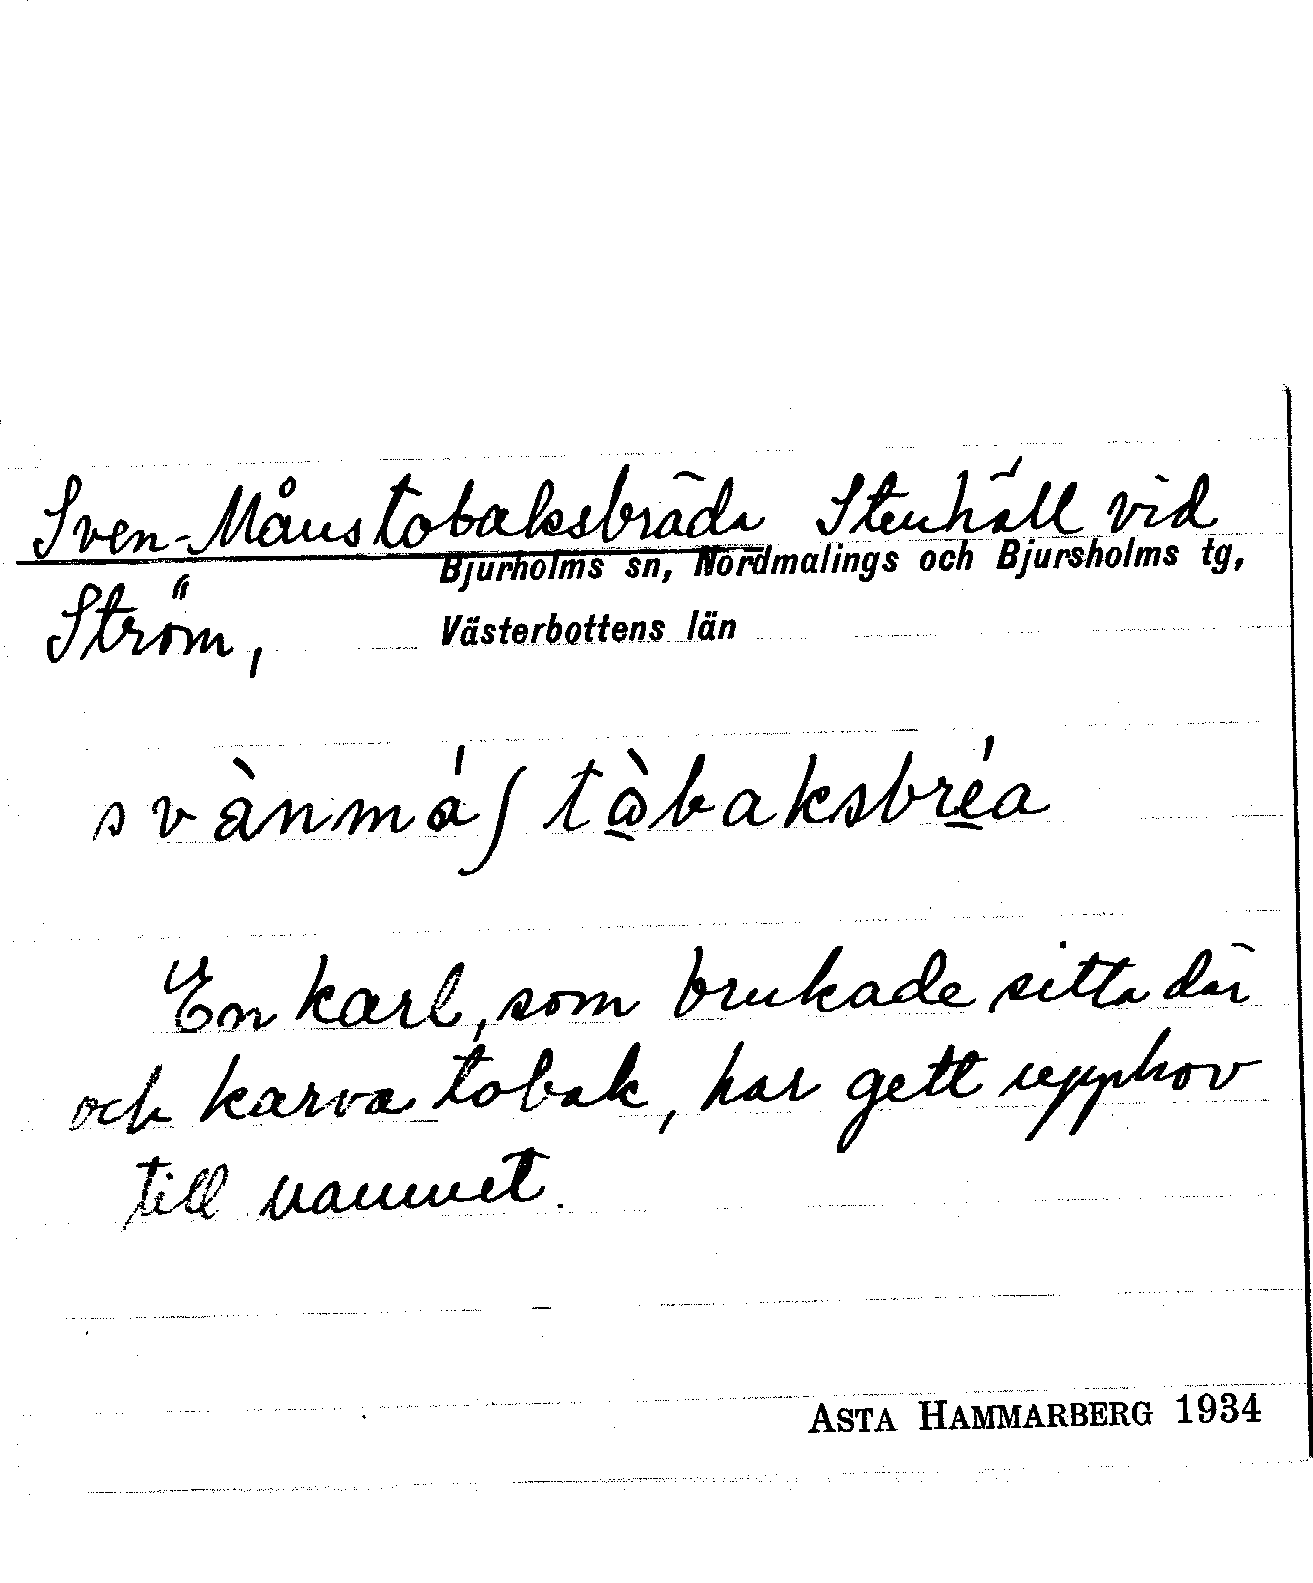 Sven-Måns tobaksbräda Stenhäll vid
Bjurholms sn, Nordmalings och Bjursholms tg,
Ström, Västerbottens län
svànmá∫ tὼbaksbréa
En karl, som brukade sitta där
och karva tobak, har gett upphov
till namnet.
ASTA HAMMARBERG 1934